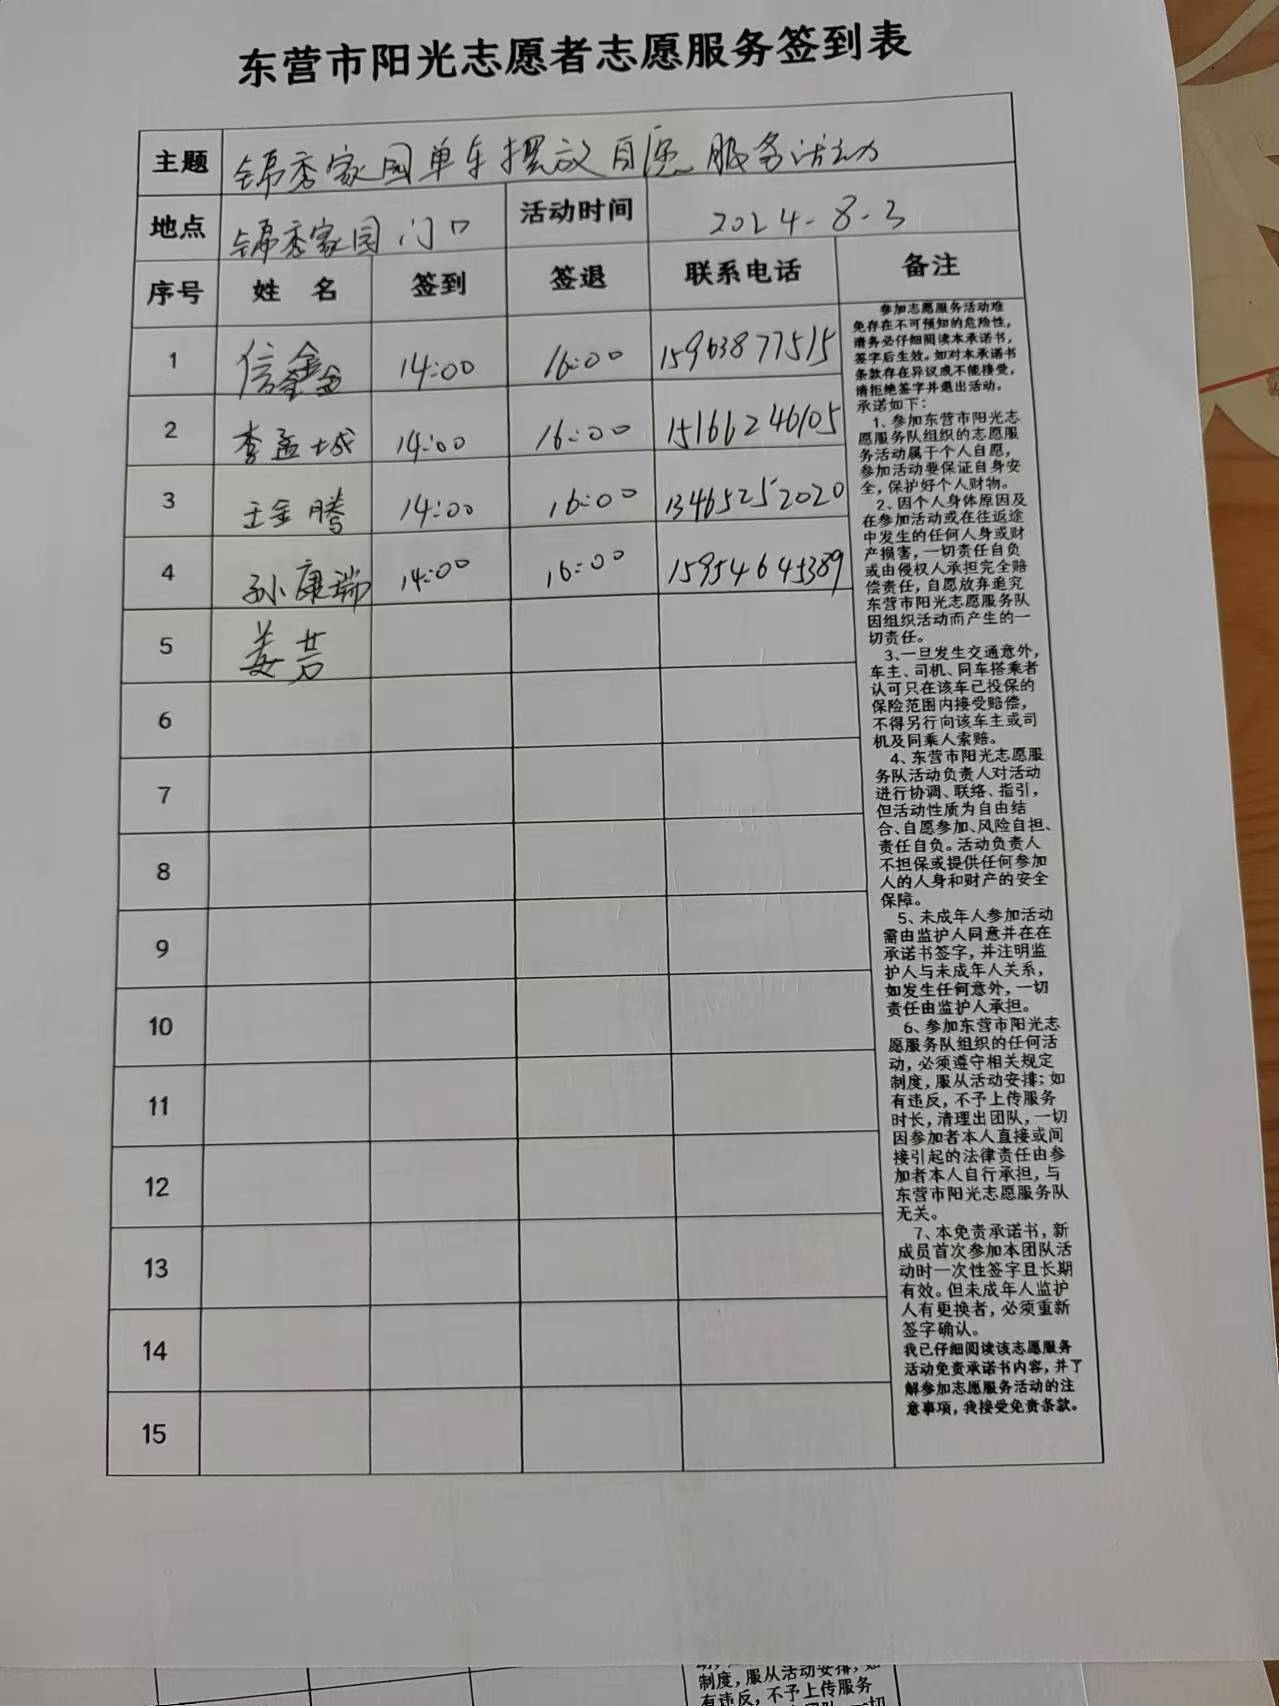 东营市阳光志愿者志愿服务签到表
主题 锦秀家园单车摆放自愿服务活动
地点 锦秀家园门口 活动时间 2024-8-3
序号 姓 名 签到 签退 联系电话 备注
1 信鑫 14:00 16:00 15963877515
2 李孟城 14:00 16:00 15166246105
3 王金腾 14:00 16:00 13465252020
4 孙康瑞 14:00 16:00 15954645389
5 姜芸
6
7
8
9
10
11
12
13
14
15
参加志愿服务活动难
免存在不可预知的危险性，
请务必仔细阅读本承诺书，
签字后生效。如对本承诺书
条款存在异议或不能接受，
请拒绝签字并退出活动。
承诺如下：
1、参加东营市阳光志
愿服务队组织的志愿服
务活动属于个人自愿，
参加活动要保证自身安
全，保护好个人财物。
2、因个人身体原因及
在参加活动或在往返途
中发生的任何人身或财
产损害，一切责任自负
或由侵权人承担完全赔
偿责任，自愿放弃追究
东营市阳光志愿服务队
因组织活动而产生的一
切责任。
3、一旦发生交通意外，
车主、司机、同车搭乘者
认可只在该车已投保的
保险范围内接受赔偿，
不得另行向该车主或司
机及同乘人索赔。
4、东营市阳光志愿服
务队活动负责人对活动
进行协调、联络、指引，
但活动性质为自由结
合、自愿参加、风险自担、
责任自负。活动负责人
不担保或提供任何参加
人的人身和财产的安全
保障。
5、未成年人参加活动
需由监护人同意并在在
承诺书签字，并注明监
护人与未成年人关系，
如发生任何意外，一切
责任由监护人承担。
6、参加东营市阳光志
愿服务队组织的任何活
动，必须遵守相关规定
制度，服从活动安排；如
有违反，不予上传服务
时长，清理出团队，一切
因参加者本人直接或间
接引起的法律责任由参
加者本人自行承担，与
东营市阳光志愿服务队
无关。
7、本免责承诺书，新
成员首次参加本团队活
动时一次性签字且长期
有效。但未成年人监护
人有更换者，必须重新
签字确认。
我已仔细阅读该志愿服务
活动免责承诺书内容，并了
解参加志愿服务活动的注
意事项，我接受免责条款。
制度，服从活动安排；如
有违反，不予上传服务